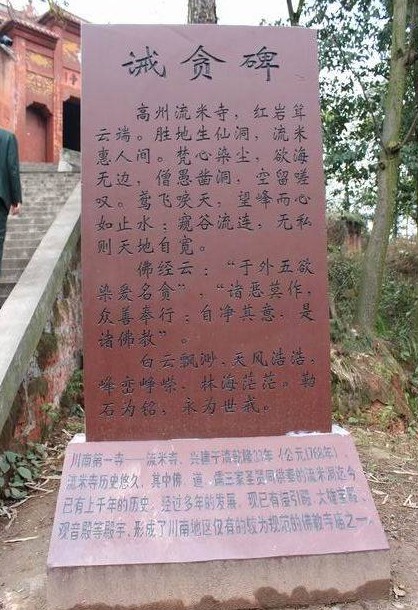 诫贪碑
高州流米寺，红岩耸
云端。胜地生仙洞，流米
惠人间。梵心染尘，欲海
无边，僧愚凿洞，空留嗟
叹。鸢飞唳天，望峰而心
如止水；窥谷流连，无私
则天地自宽。
佛经云：“于外五欲
染爱名贪”，“诸恶莫作，
众善奉行；自净其意，是
诸佛教”。
白云飘渺，天风浩浩，
峰峦峥嵘，林海茫茫。勒
石为铭，永为世戒。
川南第一寺——流米寺，兴建于清乾隆33年（公元1768年），
流米寺历史悠久，其中佛、道、儒三家圣贤同供奉的流米洞迄今
已有上千年的历史，经过多年的发展，现已有接引殿、大雄宝殿、
观音殿等殿宇，形成了川南地区仅有的较为规范的佛教寺庙之一。